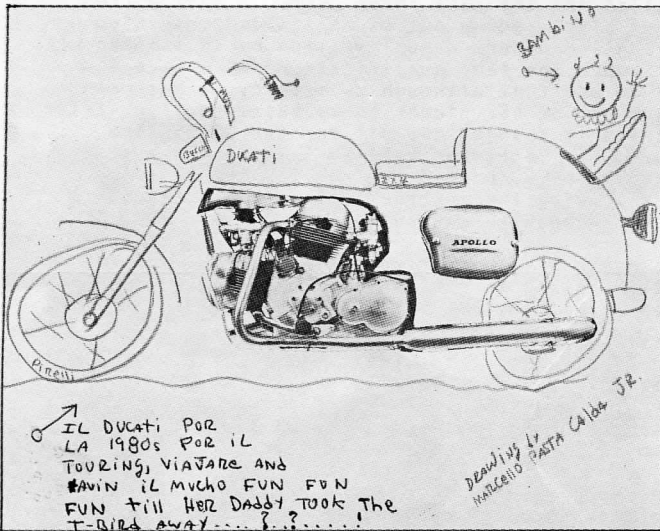 BAMBINO
DUCATI
2x4
APOLLO
Pirelli
IL DUCATI POR
LA 1980s POR iL
TOURING, VIAJARE AND
HAVIN iL MUCHO FUN FUN
FUN till HER DADDY TOOK THE
T-BIRD AWAY....?..?......!
DRAWING by
MARCELLO PASTA CALDA JR.